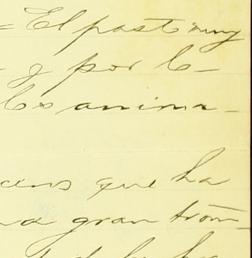 = El past muy
y por l-
los anima-
cens que ha
na gran trom-